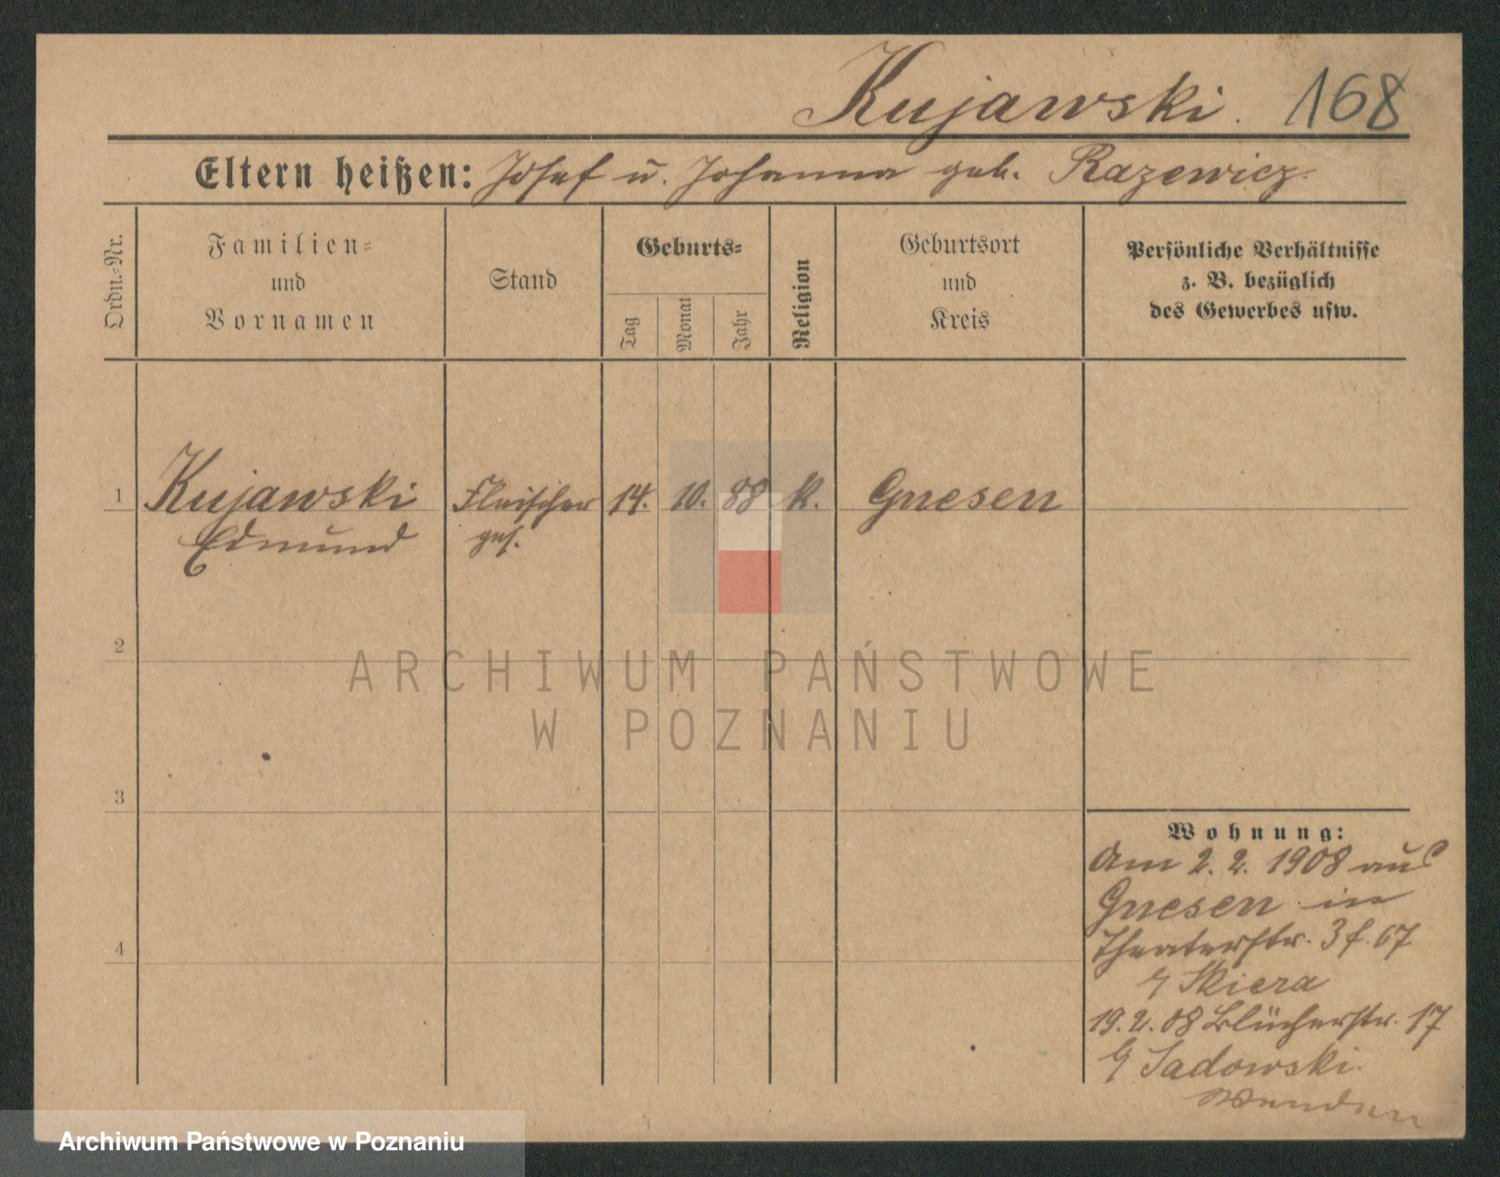 Kujawski. 168
Eltern heißen: Josef u. Johanna geb. Razewicz
Ordn.-Nr.
Familien-
und
Vornamen
Stand
Geburts-
Tag
Monat
Jahr
Religion
Geburtsort
und
Kreis
Persönliche Verhältnisse
z. B. bezüglich
des Gewerbes usw.
1 Kujawski Fleischer 14. 10. 88 k. Gnesen
Edmund ges.
2
ARCHIWUM PAŃSTWOWE
W POZNANIU
3
Wohnung:
Am 2.2.1908 aus
Gnesen in
Theaterstr. 3 f. 67
Skiera
4
19.2.08 Blücherstr. 17
Sadowski.
Wenden
Archiwum Państwowe w Poznaniu